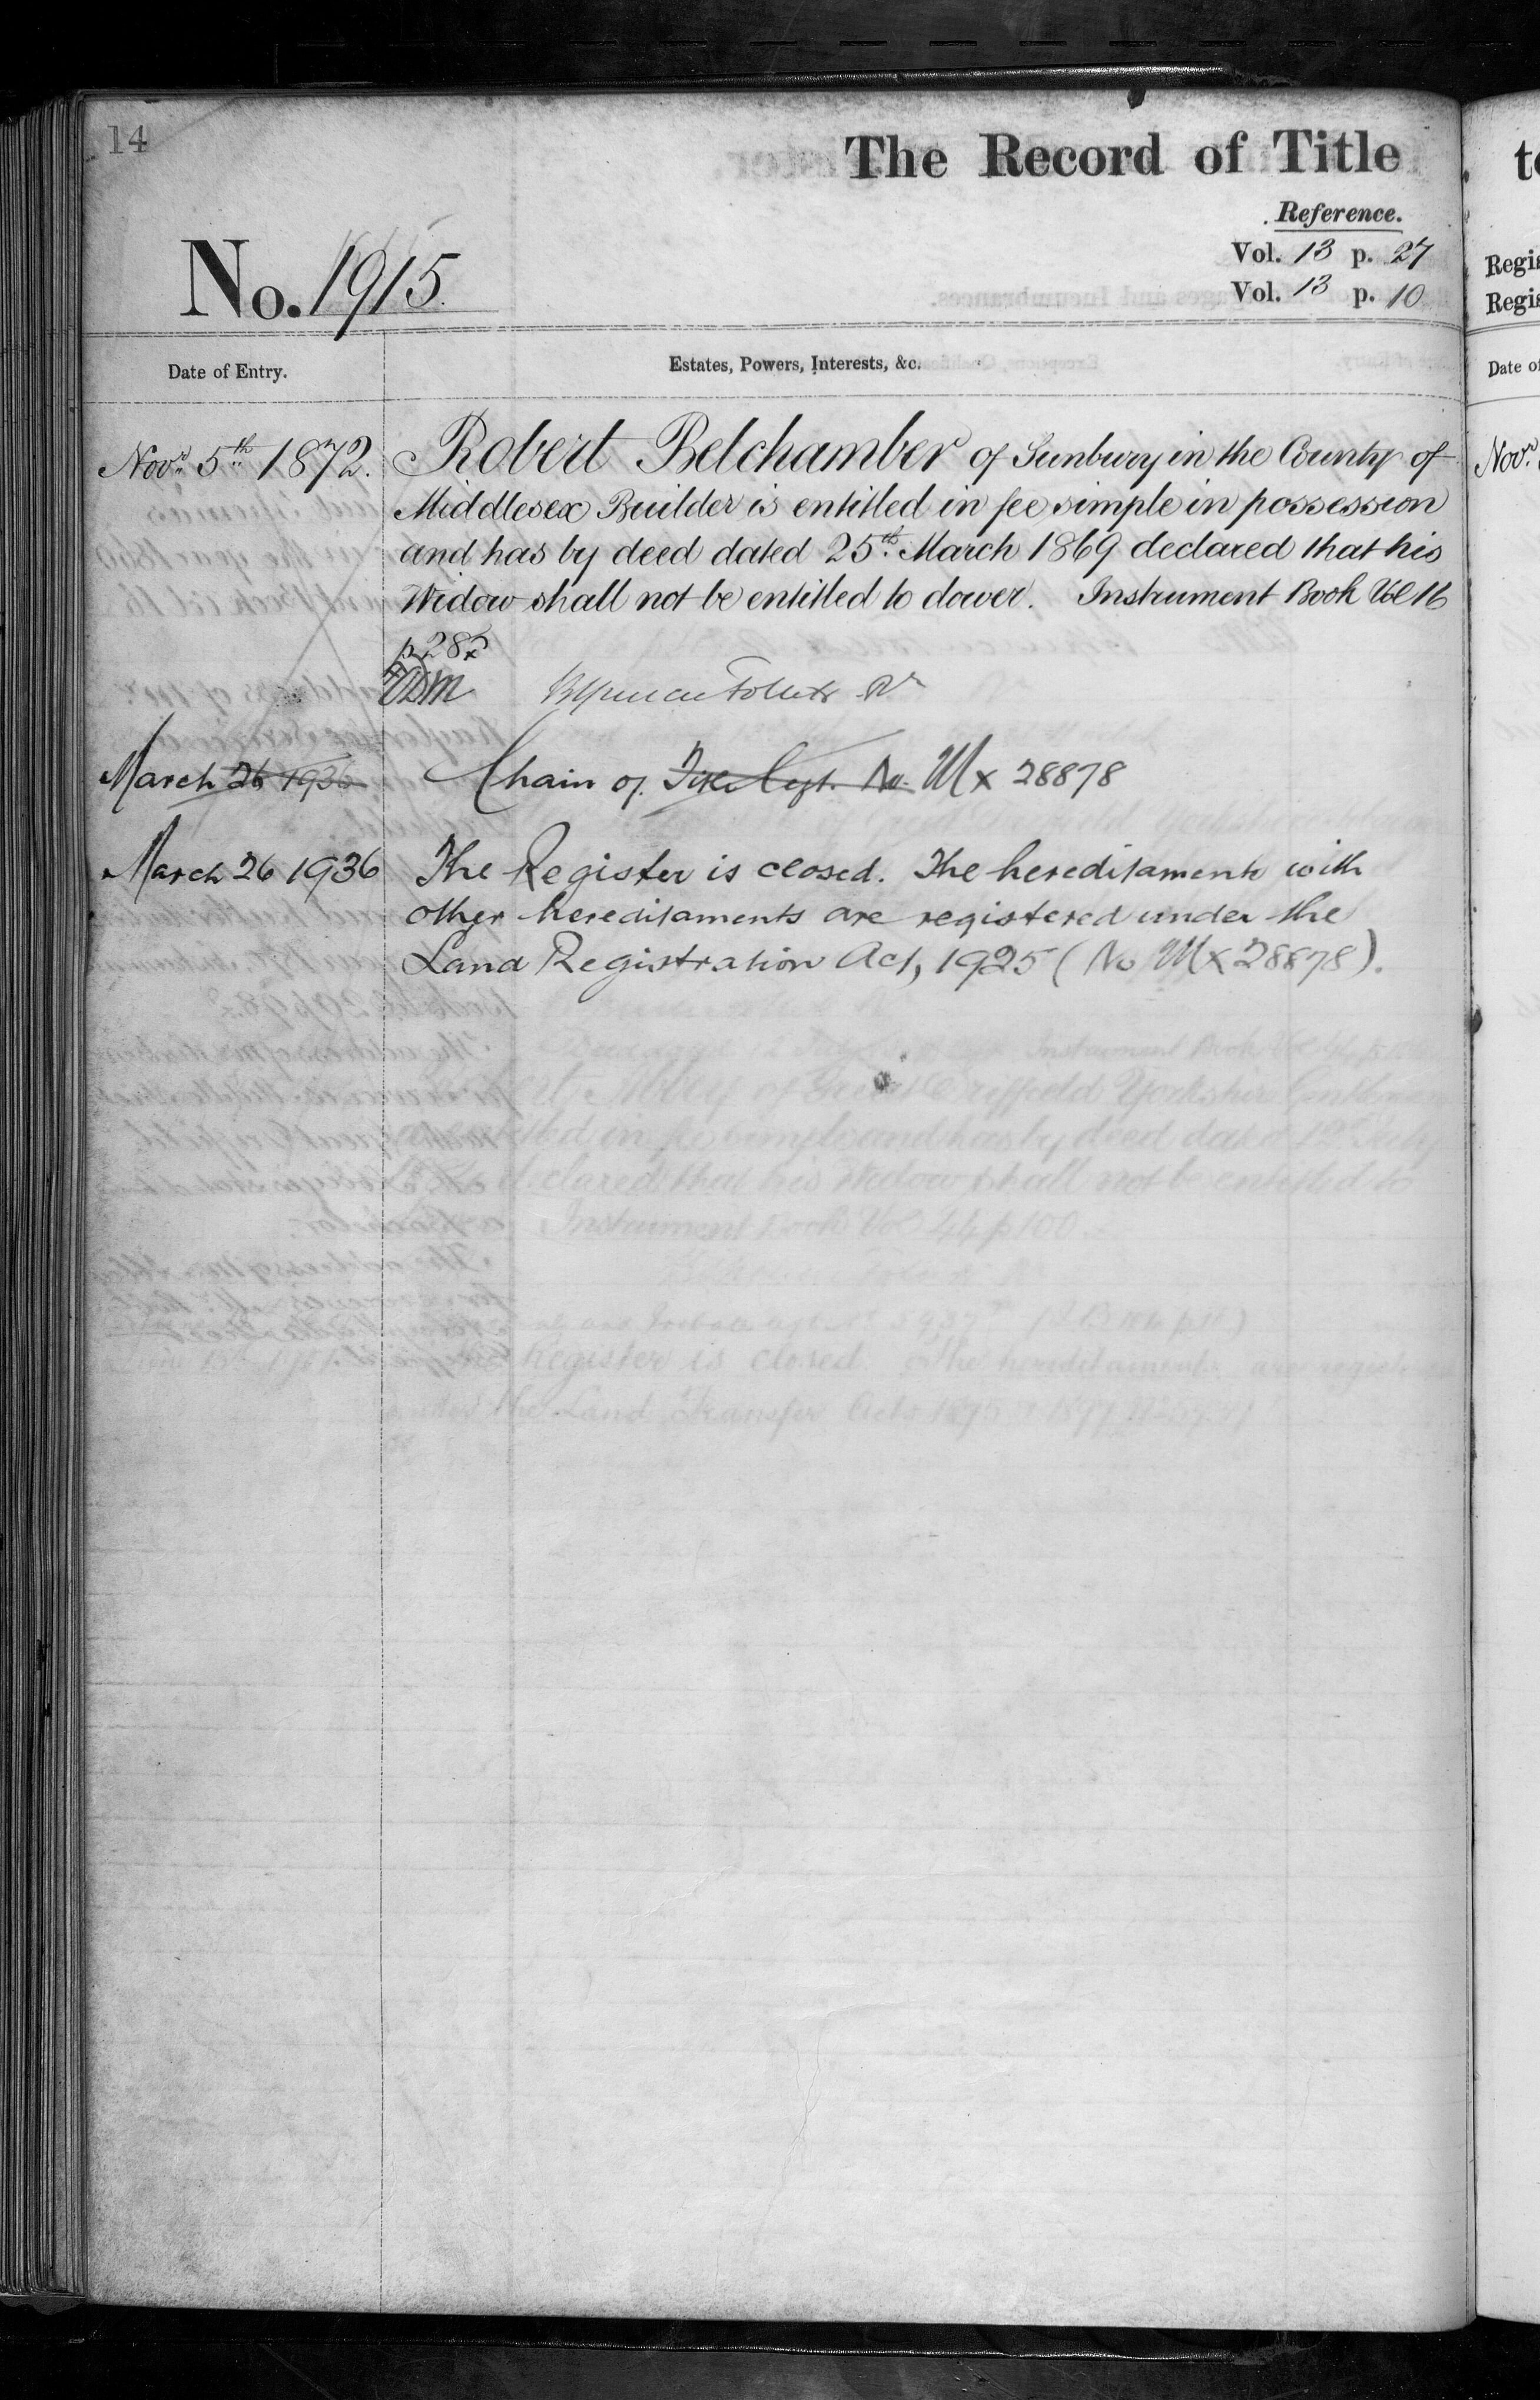 14
The Record of Title
Reference.
No. 1915.
Vol. 13 p. 27
Vol. 13 p. 10
Date of Entry.
Estates, Powers, Interests, &c.
Novr. 5th 1872.
Robert Belchamber of Sunbury in the County of
Middlesex Builder is entitled in fee simple in possession
and has by deed dated 25th March 1869 declared that his
Widow shall not be entitled to dower. Instrument Book Vol 16
p 285
March 26 1936 Chain of Title Cert. No. Mx 28878
March 26 1936 The Register is closed. The hereditaments with
other hereditaments are registered under the
Land Registration Act, 1925 (No Mx 28878).
Regis
Regis
Date of
Novr.